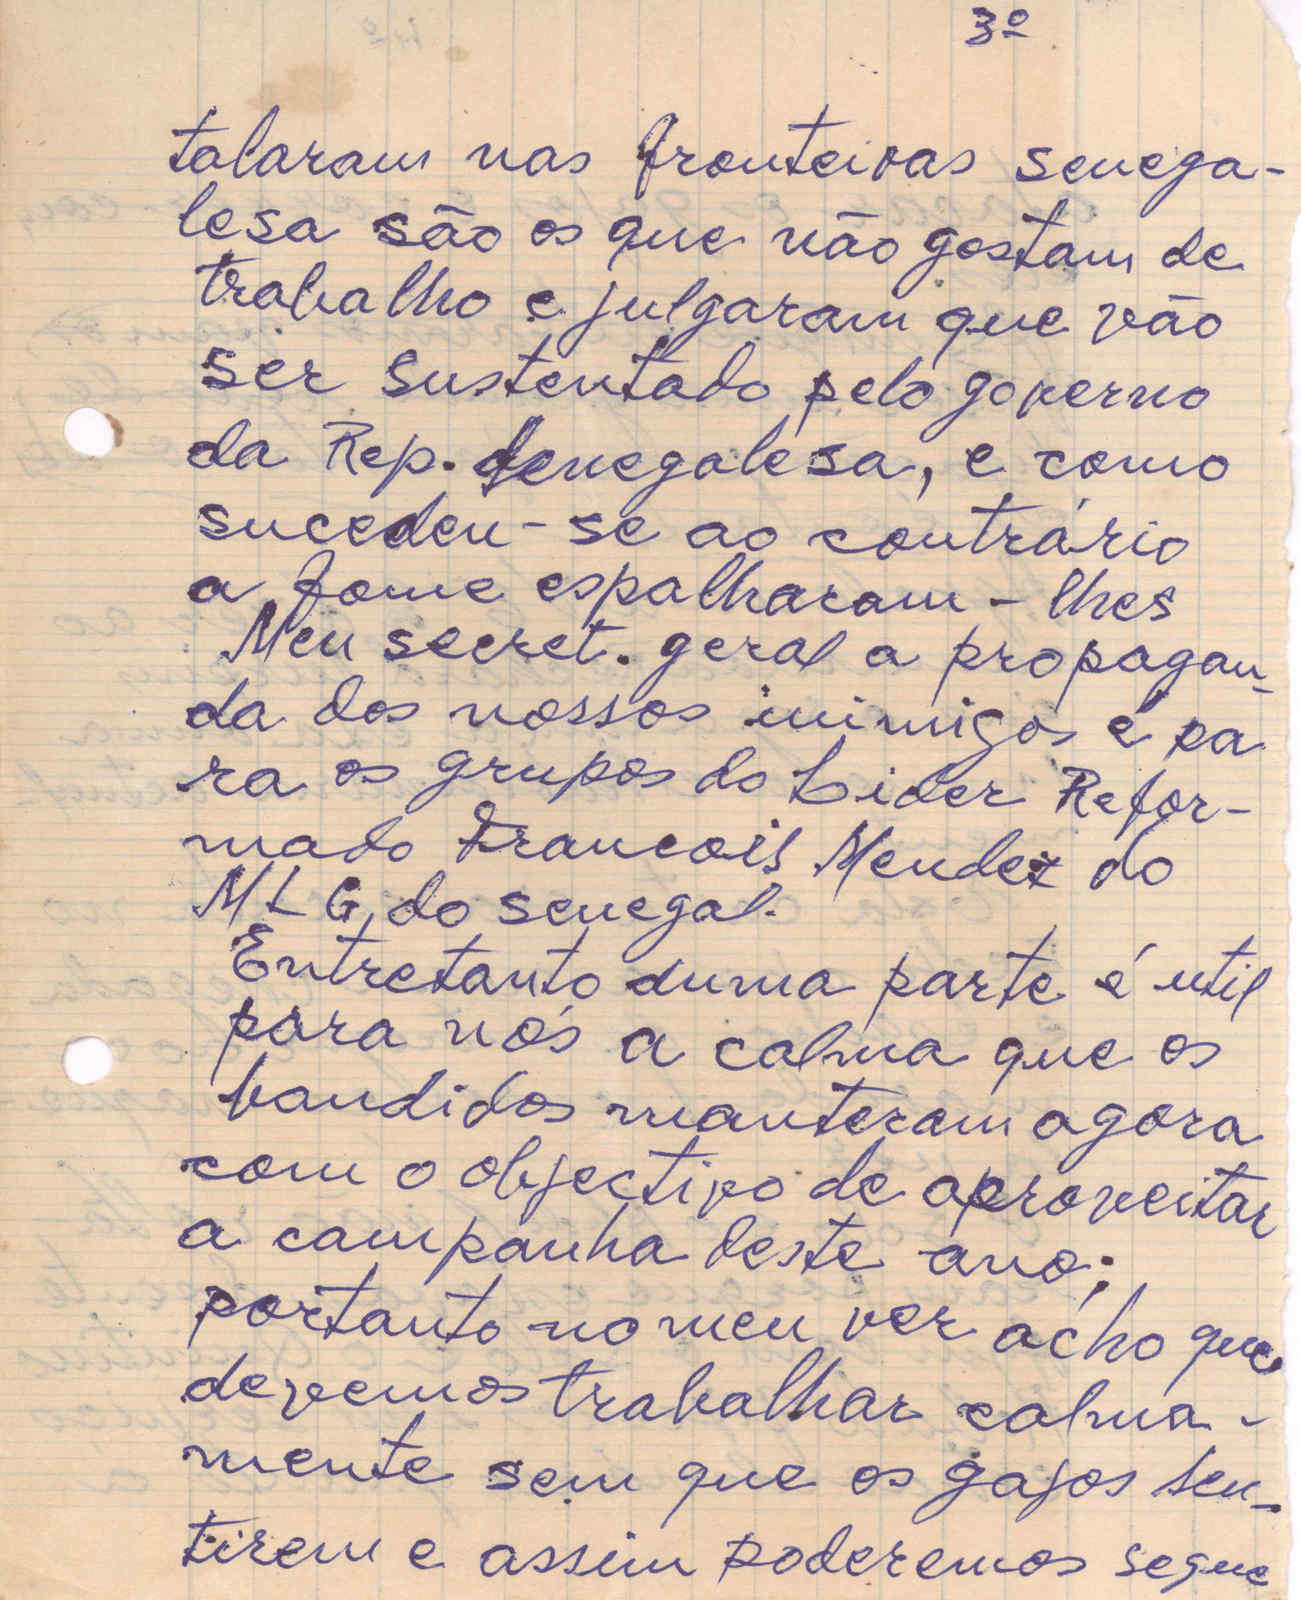 3º
talaram nas fronteiras senega-
lesa são os que não gostam de
trabalho e julgaram que vão
ser sustentado pelo governo
da Rep. Senegalesa, e como
sucedeu-se ao contrário
a fome espalharam-lhes
Meu secret. geral a propagan-
da dos nossos inimigos é pa
ra os grupos do Lider Refor-
mado Francois Mendez do
MLG, do senegal.
Entretanto duma parte é util
para nós a calma que os
bandidos manteram agora
com o objectivo de aproveitar
a campanha deste ano;
portanto no meu ver ácho que
devemos trabalhar calma-
mente sem que os gajos sen-
tirem e assim poderemos segue